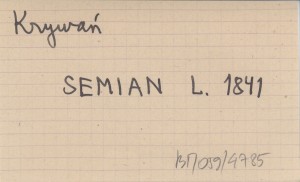 Krywań
SEMIAN L. 1841
BП/059/4785